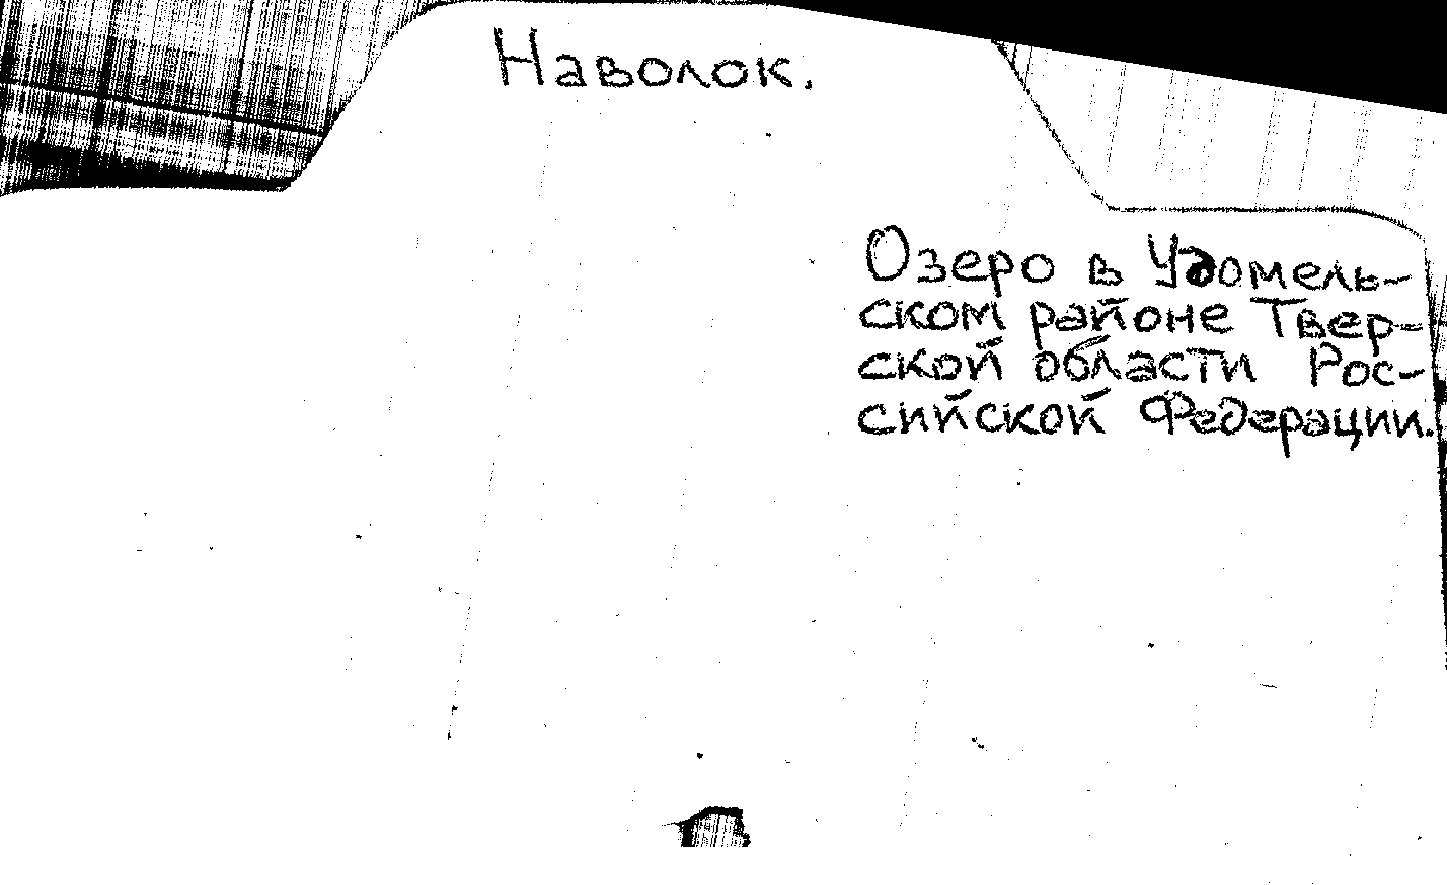 Наволок.
Озеро в Удомель-
ском районе Твер-
ской области Рос-
сийской Федерации.